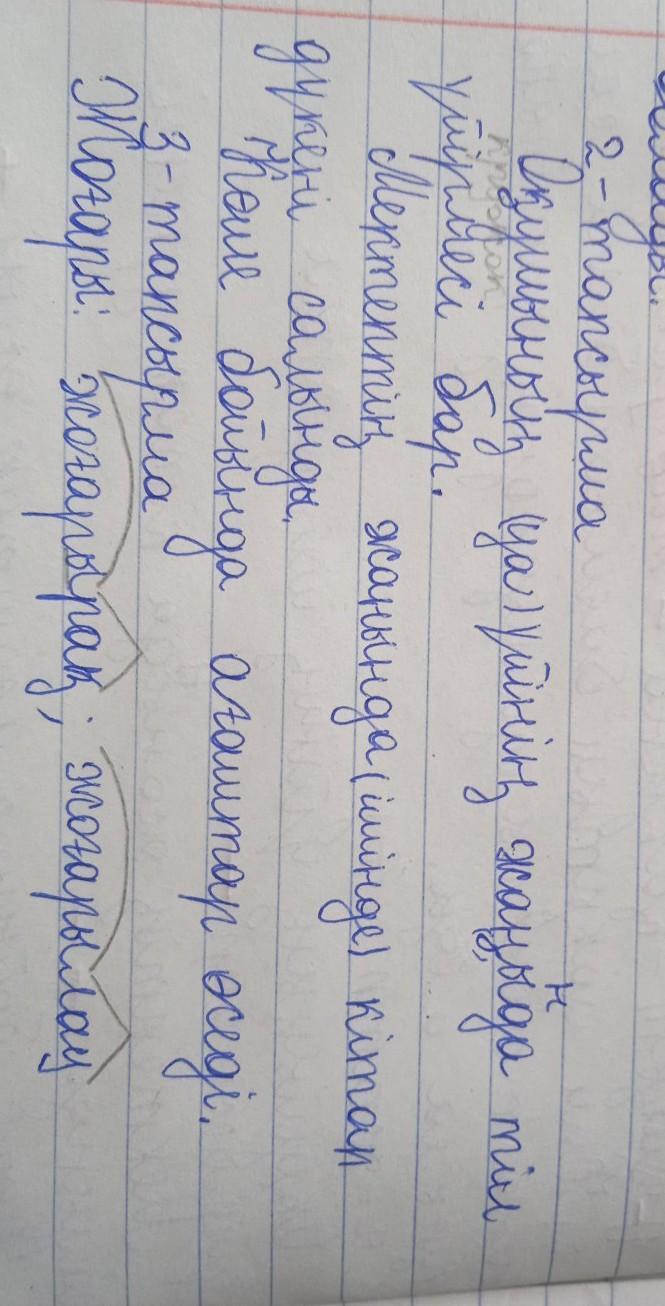 2-тапсырма
Оқушының (ца) үшінің жаңында тіл
кружок
үйірмесі бар.
Мектептің жаңында (ішінде) кітап
дүкені салынды.
Көше бойында ағаштар өседі.
3-тапсырма
Жоғары: жоғарырақ, жоғарылау